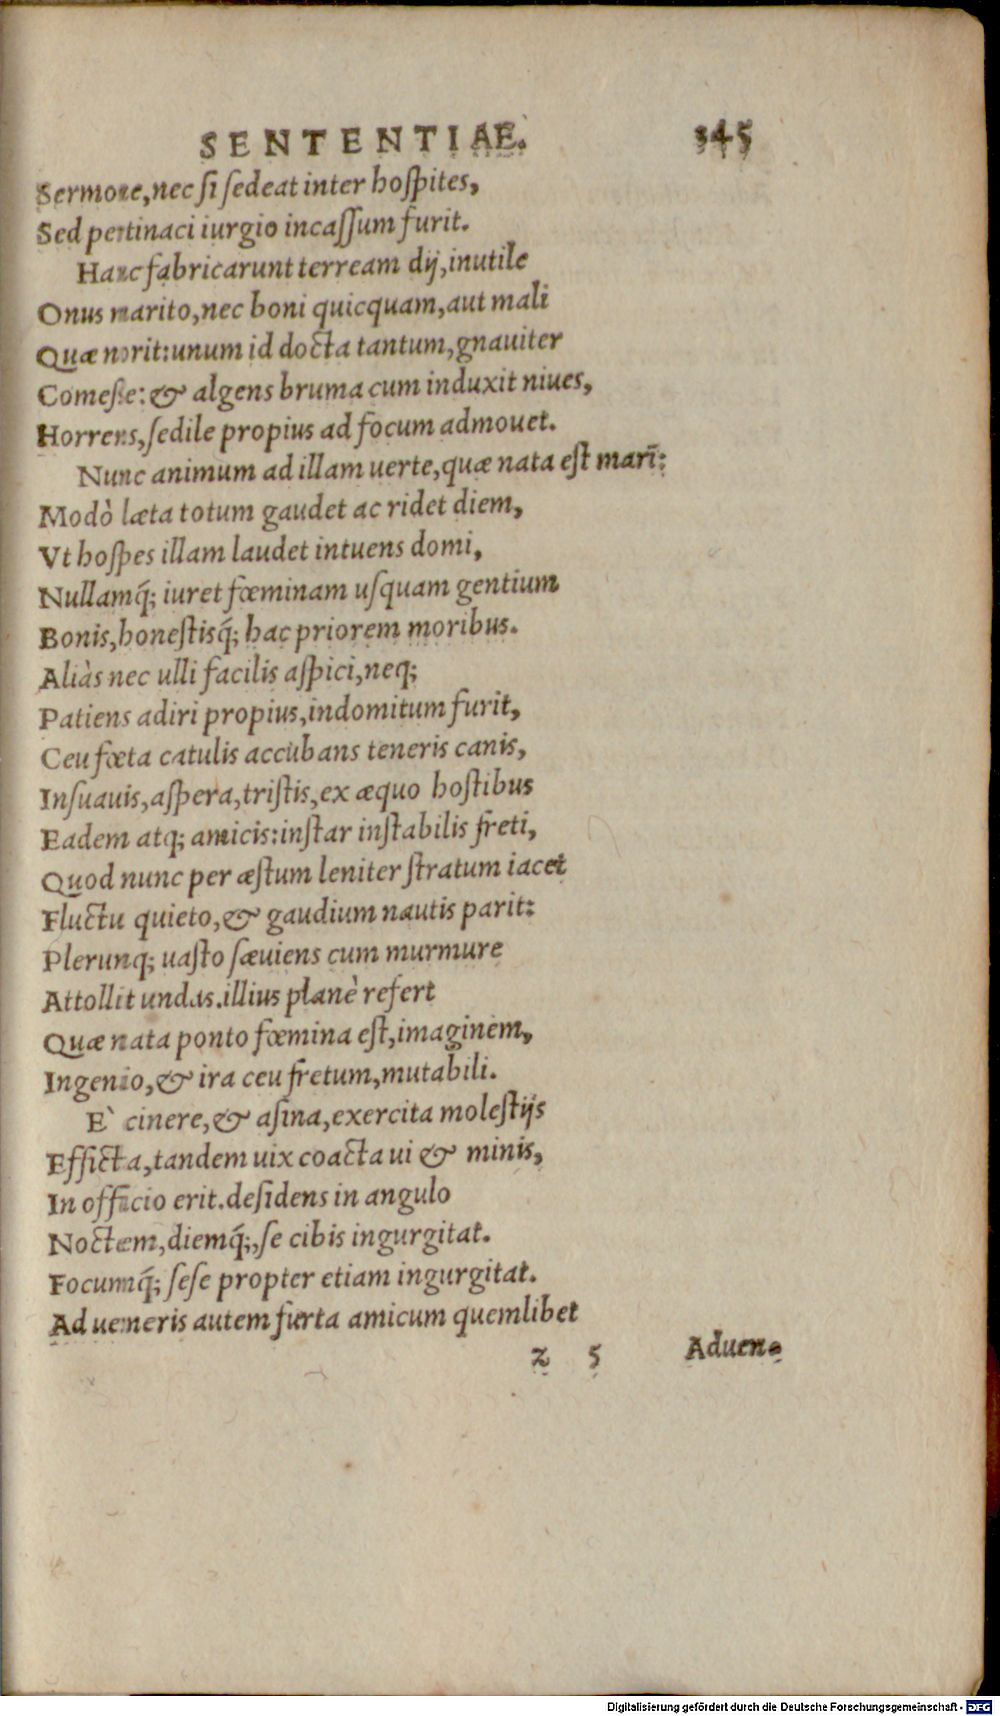 SENTENTIAE. 345
Sermone, nec ſi ſedeat inter hoſpites,
Sed pertinaci iurgio incaſſum furit.
Hanc fabricarunt terream dij, inutile
Onus marito, nec boni quicquam, aut mali
Quæ norit: unum id docta tantum, gnauiter
Comeſſe: & algens bruma cum induxit niues,
Horrens, ſedile propius ad focum admouet.
Nunc animum ad illam uerte, quæ nata eſt marī:
Modò læta totum gaudet ac ridet diem,
Vt hoſpes illam laudet intuens domi,
Nullamq́; iuret fœminam uſquam gentium
Bonis, honeſtisq́; hac priorem moribus.
Aliàs nec ulli facilis aſpici, neq;
Patiens adiri propius, indomitum furit,
Ceu fœta catulis accubans teneris canis,
Inſuauis, aſpera, triſtis, ex æquo hoſtibus
Eadem atq; amicis: inſtar inſtabilis freti,
Quod nunc per æſtum leniter ſtratum iacet
Fluctu quieto, & gaudium nautis parit:
Plerunq; uaſto ſæuiens cum murmure
Attollit undas. illius planè refert
Quæ nata ponto fœmina eſt, imaginem,
Ingenio, & ira ceu fretum, mutabili.
E` cinere, & aſina, exercita moleſtijs
Efficta, tandem uix coacta ui & minis,
In officio erit. deſidens in angulo
Noctem, diemq́;, ſe cibis ingurgitat.
Focumq́; ſeſe propter etiam ingurgitat.
Ad ueneris autem furta amicum quemlibet
z 5 Aduen-
Digitalisierung gefördert durch die Deutsche Forschungsgemeinschaft - DFG